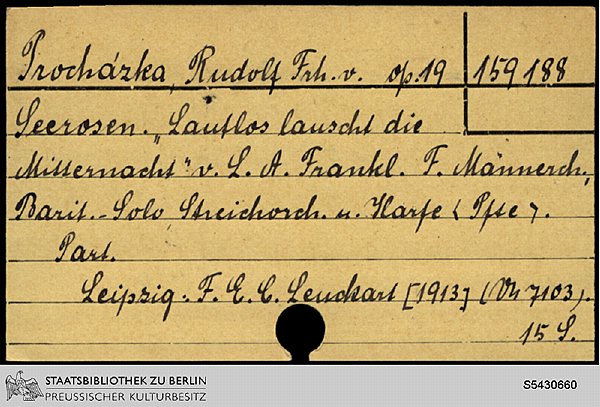 Procházka, Rudolf Frh. v. op. 19 159 188
Seerosen. "Lautlos lauscht die
Mitternacht" v. L. A. Frankl. F. Männerch.,
Barit.-Solo, Streichorch. u. Harfe < Pfte >.
Part.
Leipzig: F. E. C. Leuckart [1913] (VN 7103).
15 S.
STAATSBIBLIOTHEK ZU BERLIN
PREUSSISCHER KULTURBESITZ
S5430660